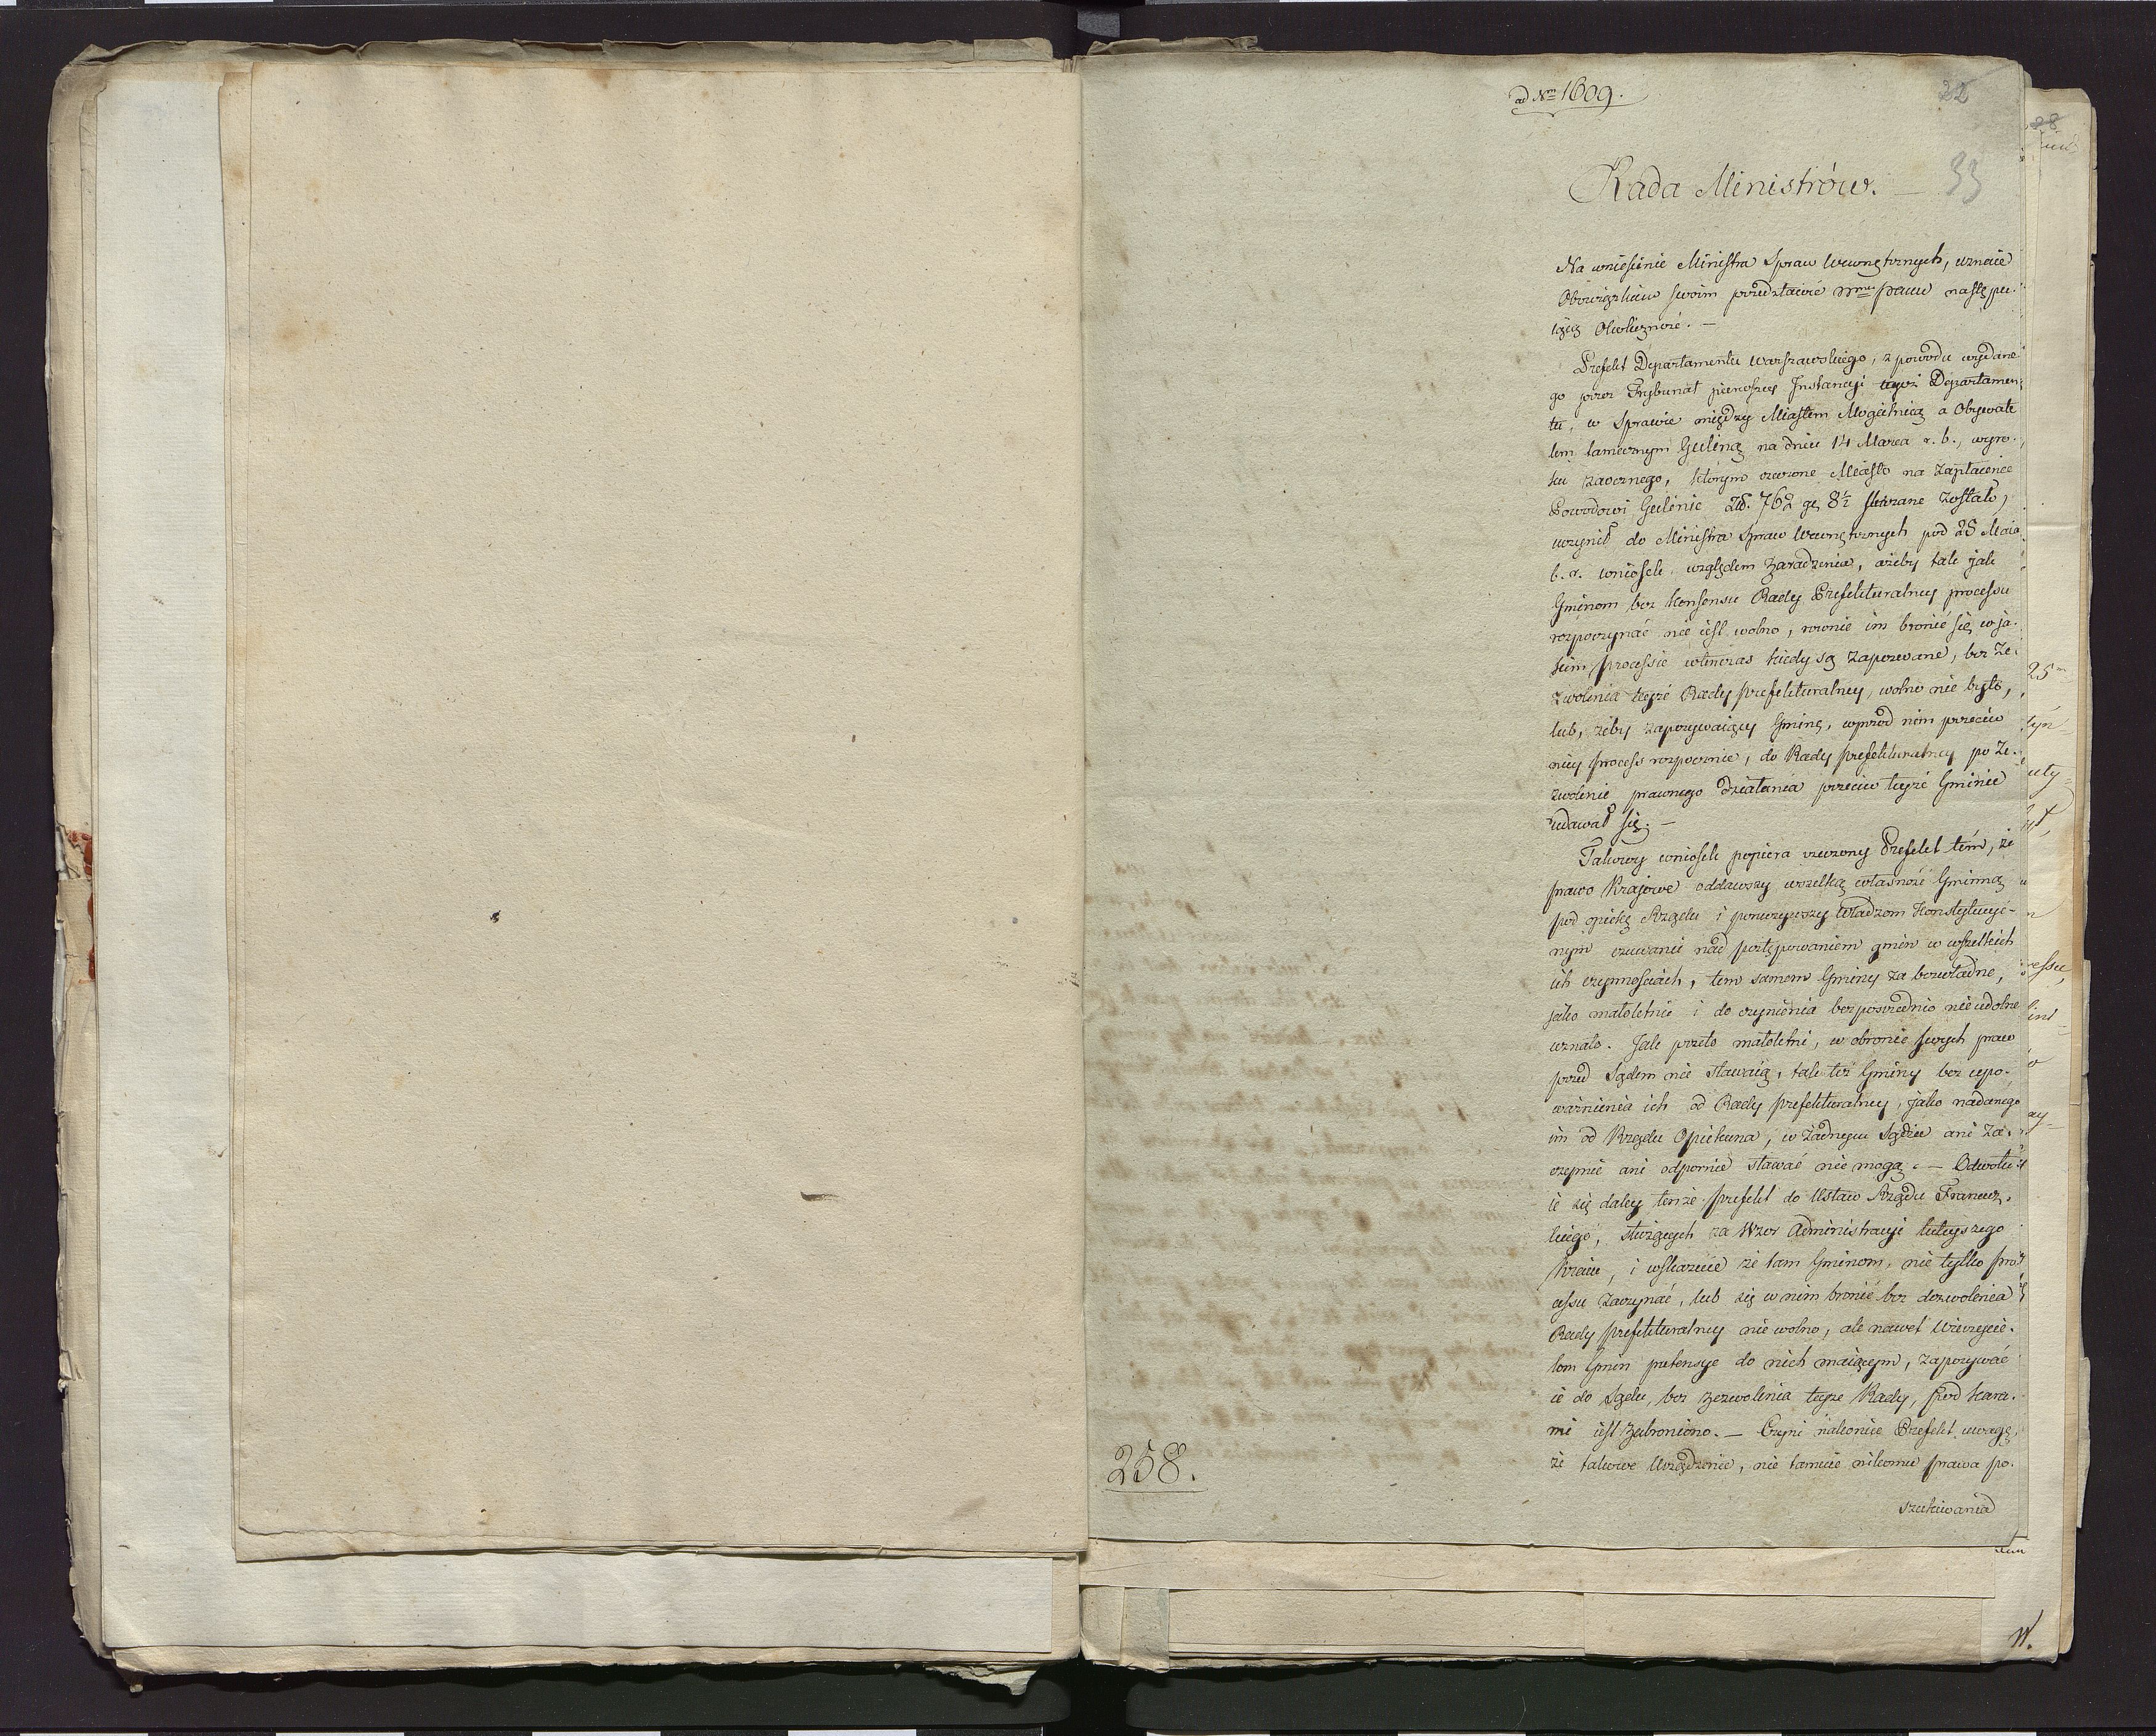 ad Nrm 1609.
22
33
Rada Ministrów. —
Na wniesienie Ministra Spraw Wewnętrznych, uznaie
Obowiązkiem swoim przedstawić następu-
iącą Okoliczność. —
Prefekt Departamentu Warszawskiego, z powodu wydane-
go przez Trybunał pierwszey Instancyi tegoż Departamen-
tu, w Sprawie między Miastem Mogielnicą a Obywate-
lem tamecznym Guliną na dniu 14 Marca r. b., wyro-
ku zaocznego, którym rzeczone Miasto na zapłacenie
Powodowi Gulinie Zł. 762 gr 8½ skazane zostało,
uczynił do Ministra Spraw Wewnętrznych pod 28 Maia
b. r. wniosek względem zaradzenia, ażeby tak jak
Gminom bez konsensu Rady Prefekturalney processu
rozpoczynać nie iest wolno, rownie im bronić się w ja-
kim processie wtenczas kiedy są zapozwane, bez ze-
zwolenia teyże Rady prefekturalney, wolno nie było,
lub, żeby zapozywaiący Gminę, wprzód nim przeciw
niey process rozpocznie, do Rady prefekturalney po ze-
zwolenie prawnego działania przeciw teyże Gminie
udawał się. —
Takowy wniosek popiera rzeczony Prefekt tém, że
prawo Krajowe oddawszy wszelką własność Gminną
pod opiekę Rządu i poruczywszy Władzom Konstytucyi-
nym czuwanie nad postępowaniem gmin w wszelkich
ich czynnościach, tem samem Gminy za bezwładne,
jako małoletnie i do czynienia bezpośrednio nieudolne
uznało. Jak przeto małoletni, w obronie swych praw
przed Sądem nie stawaią, tak też Gminy bez upo-
ważnienia ich od Rady prefekturalney, jako nadanego
im od Rządu Opiekuna, w żadnym Sądzie ani za-
czepnie ani odpornie stawać nie mogą. — Odwołu-
ie się daley tenże prefekt do Ustaw Rządu Francuz-
kiego, służących za Wzor Administracyi tuteyszego
Kraiu, i wskazuie że tam Gminom, nie tylko pro-
cessu zaczynać, lub się w nim bronić bez dozwolenia
Rady prefekturalney nie wolno, ale nawet Wierzycie-
lom Gmin pretensye do nich maiącym, zapozywać
ie do Sądu, bez zezwolenia teyże Rady, pod kara-
mi iest zabroniono. — Czyni nakoniec Prefekt uwagę,
że takowe Urządzenie, nie tamuie nikomu prawa po-
szukiwania
258.